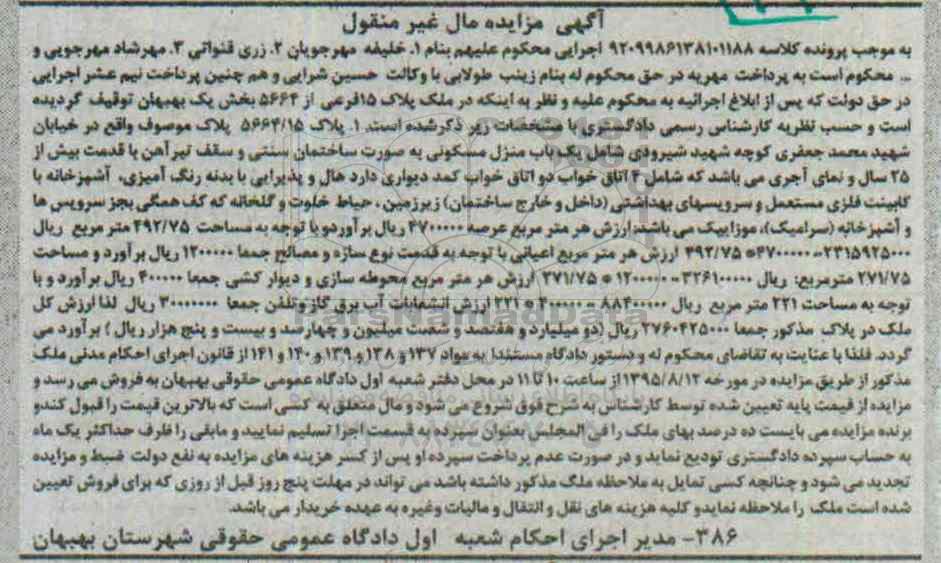 آگهی مزایده مال غیر منقول
به موجب پرونده کلاسه ۹۲۰۹۹۸۶۱۳۸۱۰۱۱۸۸ اجرایی محکوم علیهم بنام ۱. خلیفه مهرجویان ۲. زری قنواتی ۳. مهرشاد مهرجویی و
... محکوم است به پرداخت مهریه در حق محکوم له بنام زینب طولابی با وکالت حسین شرایی و هم چنین پرداخت نیم عشر اجرایی
در حق دولت که پس از ابلاغ اجرائیه به محکوم علیه و نظر به اینکه در ملک پلاک ۱۵فرعی از ۵۶۶۴ بخش یک بهبهان توقیف گردیده
است و حسب نظریه کارشناس رسمی دادگستری با مشخصات زیر ذکرشده است. ۱. پلاک ۵۶۶۴/۱۵ پلاک موصوف واقع در خیابان
شهید محمد جعفری کوچه شهید شیرودی شامل یک باب منزل مسکونی به صورت ساختمان سنتی و سقف تیرآهن با قدمت بیش از
۲۵ سال و نمای آجری می باشد که شامل ۴ اتاق خواب دو اتاق خواب کمد دیواری دارد هال و پذیرایی با بدنه رنگ آمیزی، آشپزخانه با
کابینت فلزی مستعمل و سرویسهای بهداشتی (داخل و خارج ساختمان) زیرزمین ، حیاط خلوت و گلخانه که کف همگی بجز سرویس ها
و آشپزخانه (سرامیک)، موزاییک می باشد.ارزش هر متر مربع عرصه ۴۷۰۰۰۰۰ ریال برآوردو با توجه به مساحت ۴۹۲/۷۵ متر مربع ریال
۲۳۱۵۹۲۵۰۰۰=۴۷۰۰۰۰۰*۴۹۲/۷۵ ارزش هر متر مربع اعیانی با توجه به قدمت نوع سازه و مصالح جمعا ۱۲۰۰۰۰۰ ریال برآورد و مساحت
۲۷۱/۷۵ مترمربع: ریال ۳۲۶۱۰۰۰۰۰=۱۲۰۰۰۰۰*۲۷۱/۷۵ ارزش هر متر مربع محوطه سازی و دیوار کشی جمعا ۴۰۰۰۰۰ ریال برآورد و با
توجه به مساحت ۲۲۱ متر مربع ریال ۸۸۴۰۰۰۰۰=۴۰۰۰۰۰*۲۲۱ ارزش انشعابات آب برق گاز وتلفن جمعا ۳۰۰۰۰۰۰۰ ریال لذا ارزش کل
ملک در پلاک مذکور جمعا ۲۷۶۰۴۲۵۰۰۰ ریال (دو میلیارد و هفتصد و شصت میلیون و چهارصد و بیست و پنج هزار ریال ) برآورد می
گردد. فلذا با عنایت به تقاضای محکوم له و دستور دادگاه مستندا به مواد ۱۳۷ و ۱۳۸ و ۱۳۹ و ۱۴۰ و ۱۴۱ از قانون اجرای احکام مدنی ملک
مذکور از طریق مزایده در مورخه ۱۳۹۵/۸/۱۲ از ساعت ۱۰ تا ۱۱ در محل دفتر شعبه اول دادگاه عمومی حقوقی بهبهان به فروش می رسد و
مزایده از قیمت پایه تعیین شده توسط کارشناس به شرح فوق شروع می شود و مال متعلق به کسی است که بالاترین قیمت را قبول کندو
برنده مزایده می بایست ده درصد بهای ملک را فی المجلس بعنوان سپرده به قسمت اجرا تسلیم نمایید و مابقی را ظرف حداکثر یک ماه
به حساب سپرده دادگستری تودیع نماید و در صورت عدم پرداخت سپرده او پس از کسر هزینه های مزایده به نفع دولت ضبط و مزایده
تجدید می شود و چنانچه کسی تمایل به ملاحظه ملک مذکور داشته باشد می تواند در مهلت پنج روز قبل از روزی که برای فروش تعیین
شده است ملک را ملاحظه نمایدو کلیه هزینه های نقل و انتقال و مالیات وغیره به عهده خریدار می باشد.
۳۸۶- مدیر اجرای احکام شعبه اول دادگاه عمومی حقوقی شهرستان بهبهان
ParsNamadData